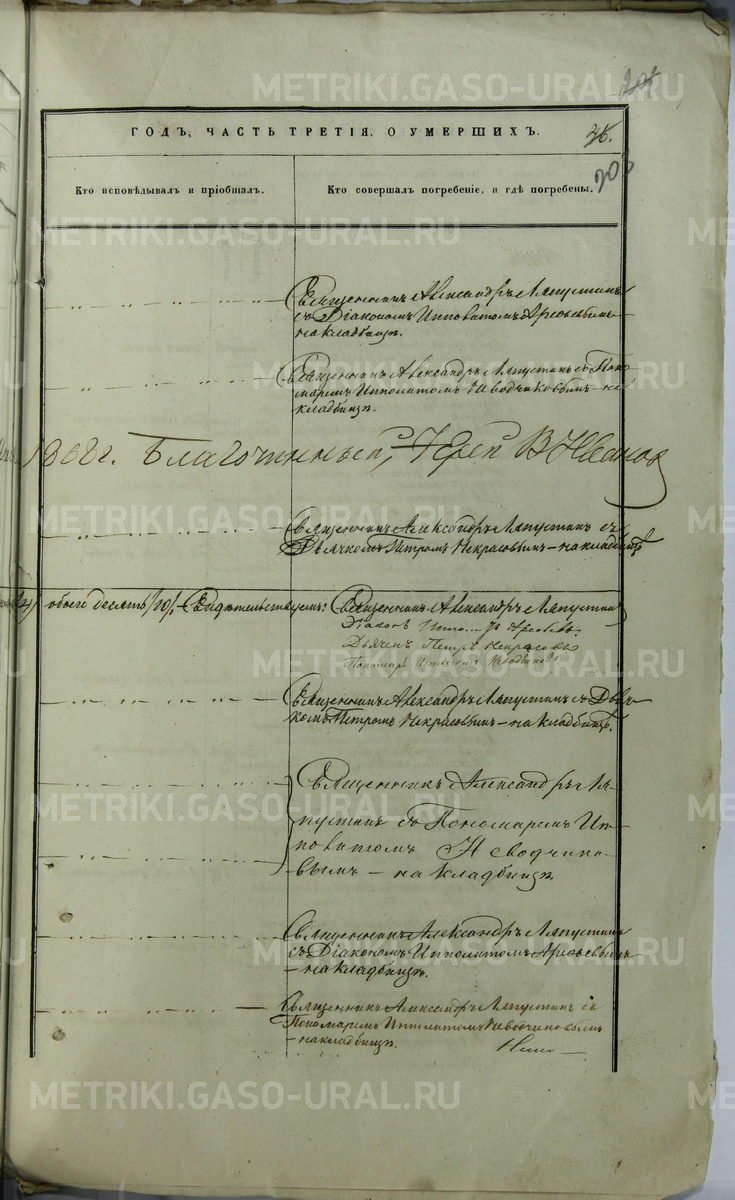 METRIKI.GASO-URAL.RU
ГОДЪ, ЧАСТЬ ТРЕТІЯ, О УМЕРШИХЪ.
Кто исповѣдывалъ и пріобщалъ.
Кто совершалъ погребеніе, и гдѣ погребены.
METRIKI.GASO-URAL.RU
Священникъ Александръ Ляпустинъ
съ Діакономъ Ипполитомъ Арефьевымъ
на кладбищѣ.
METRIKI.GASO-URAL.RU
Священникъ Александръ Ляпустинъ съ Поно
маремъ Ипполитомъ Неводчиковымъ – на
кладбищѣ.
1868 г. Благочинный, Іерей В Ивановъ
METRIKI.GASO-URAL.RU
Священникъ Александръ Ляпустинъ съ
Дьячкомъ Петромъ Некрасовымъ – на кладбищѣ
обоего десять /10/. Свидѣтельствуемъ: Священникъ Александръ Ляпустинъ
Діаконъ Арефьевъ
Дьячекъ Петръ Некрасовъ
Пономарь Неводчиковъ
METRIKI.GASO-URAL.RU
Священникъ Александръ Ляпустинъ съ Дьяч-
комъ Петромъ Некрасовымъ – на кладбищѣ.
Священникъ Александръ Ля-
METRIKI.GASO-URAL.RU
пустинъ съ Пономаремъ Ип-
политомъ Неводчико-
вымъ – на кладбищѣ.
Священникъ Александръ Ляпустинъ
METRIKI.GASO-URAL.RU
съ Діакономъ Ипполитомъ Арефьевымъ
– на кладбищѣ.
Священникъ Александръ Ляпустинъ съ
Пономаремъ Ипполитомъ Неводчиковымъ
– на кладбищѣ.
METRIKI.GASO-URAL.RU